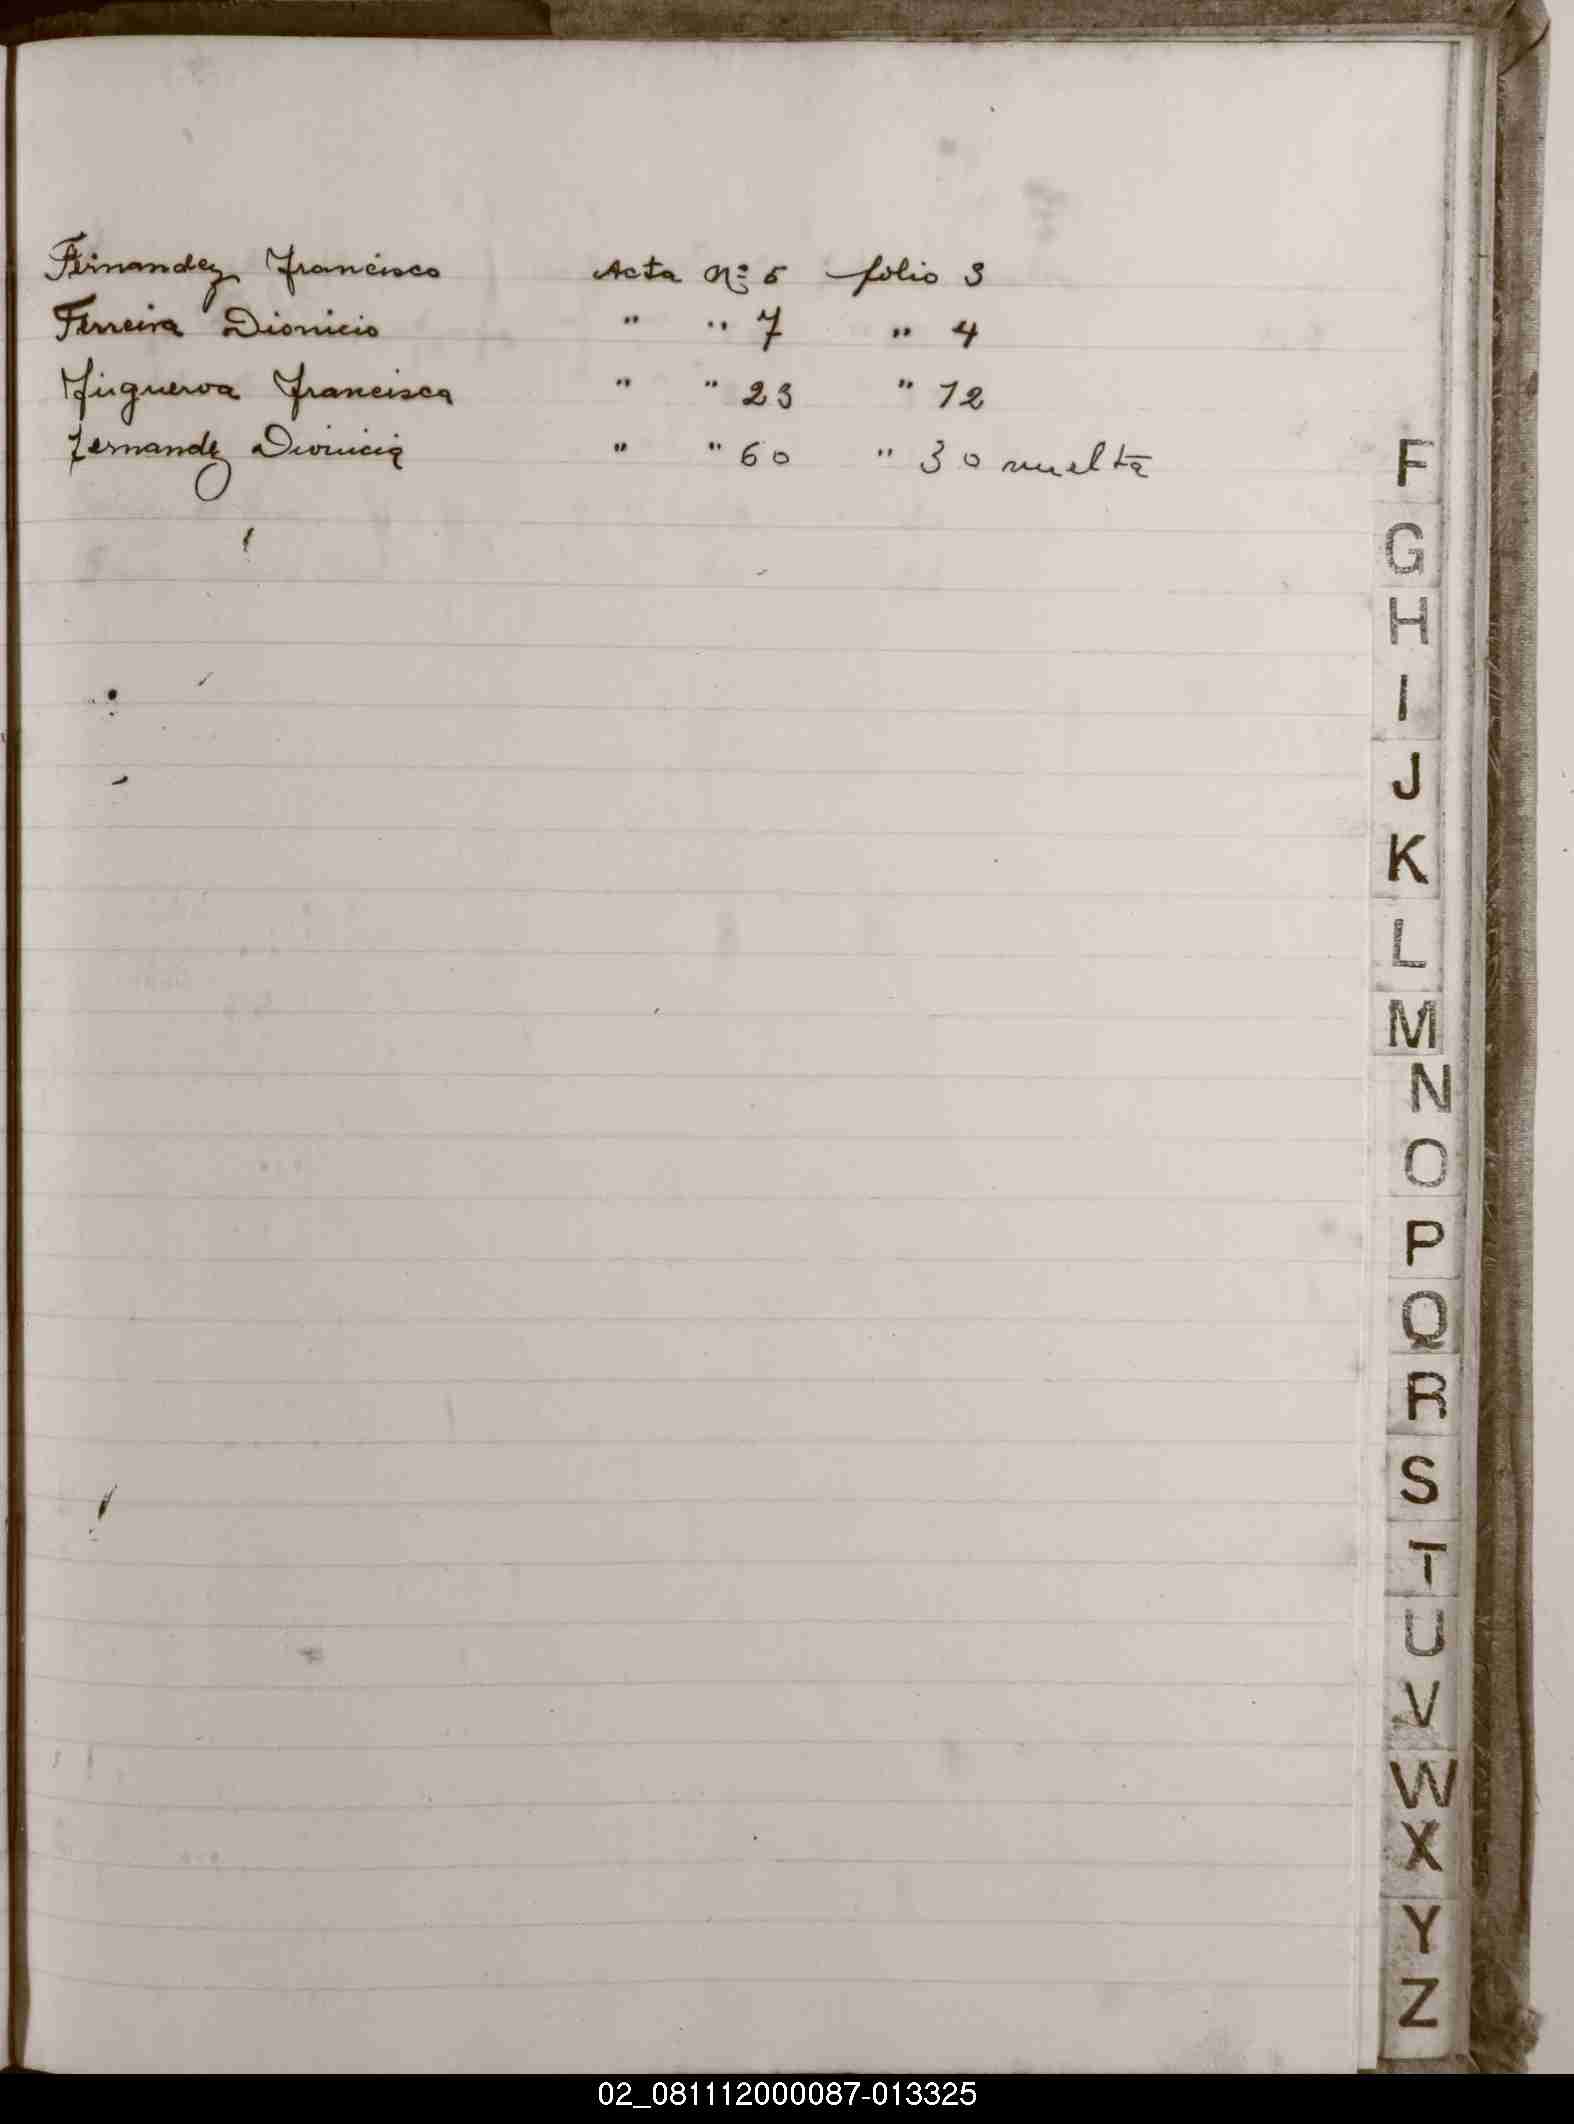 Fernandez Francisco Acta Nº 5 folio 3
Ferreira Dionicio " " 7 " 4
Figueroa Francisca " " 23 " 12
Fernandez " " 60 " 30 vuelta
F
G
H
I
J
K
L
M
N
O
P
Q
R
S
T
U
V
W
X
Y
Z
02_081112000087-013325